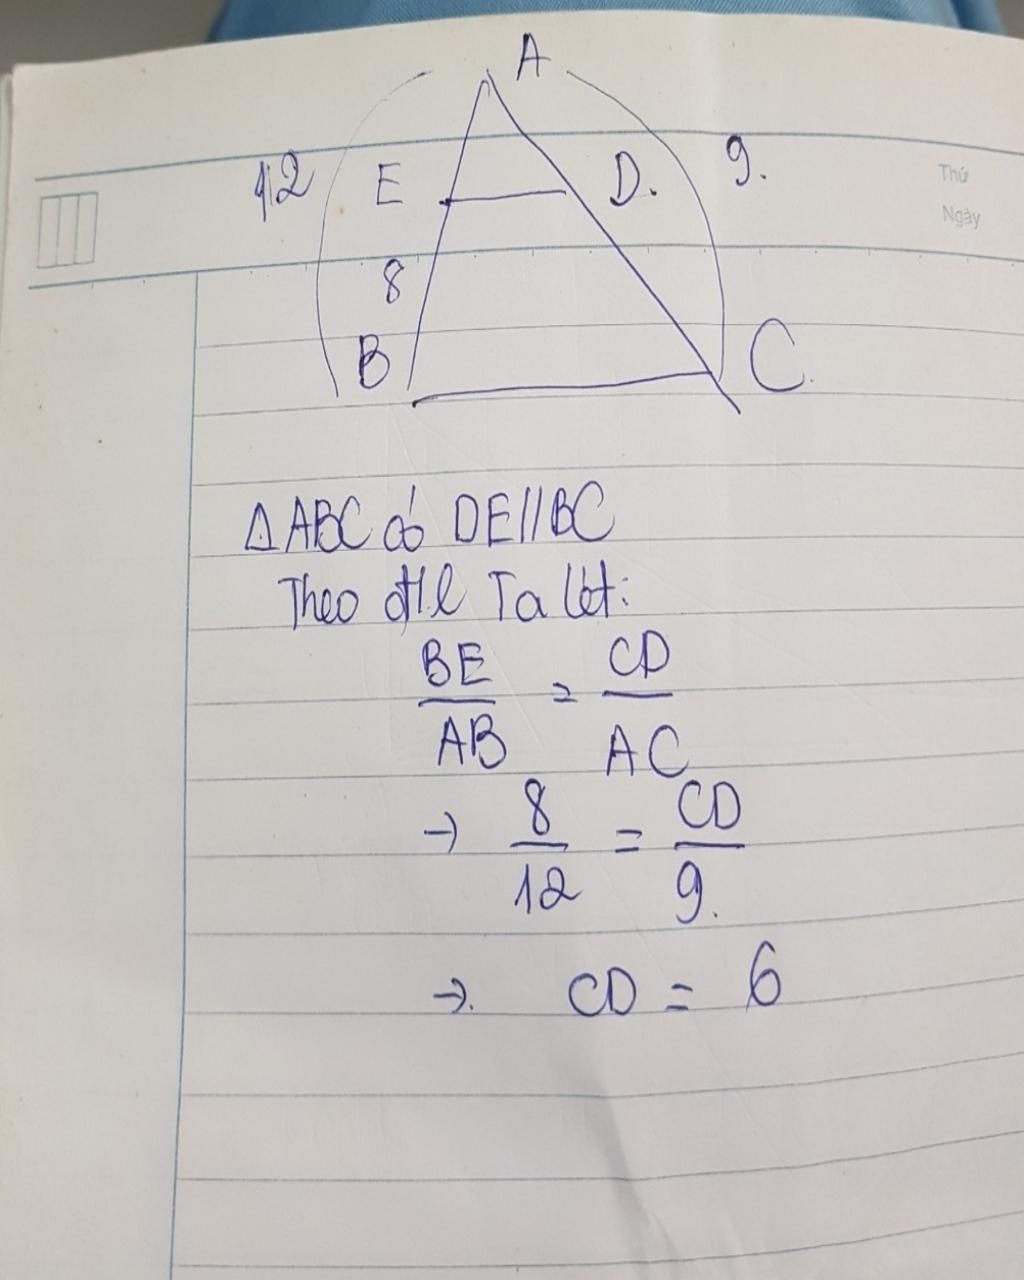 A
12 E D. 9.
Thứ
Ngày
8
B C.
Δ ABC có DE//BC
Theo đl Ta lét:
BE/AB = CD/AC
→ 8/12 = CD/9.
→. CD = 6